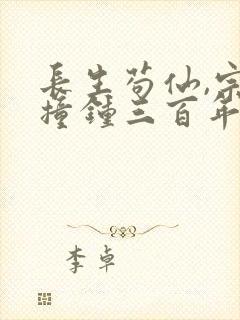 長生茍仙,宗
撞鐘三百年
李卓